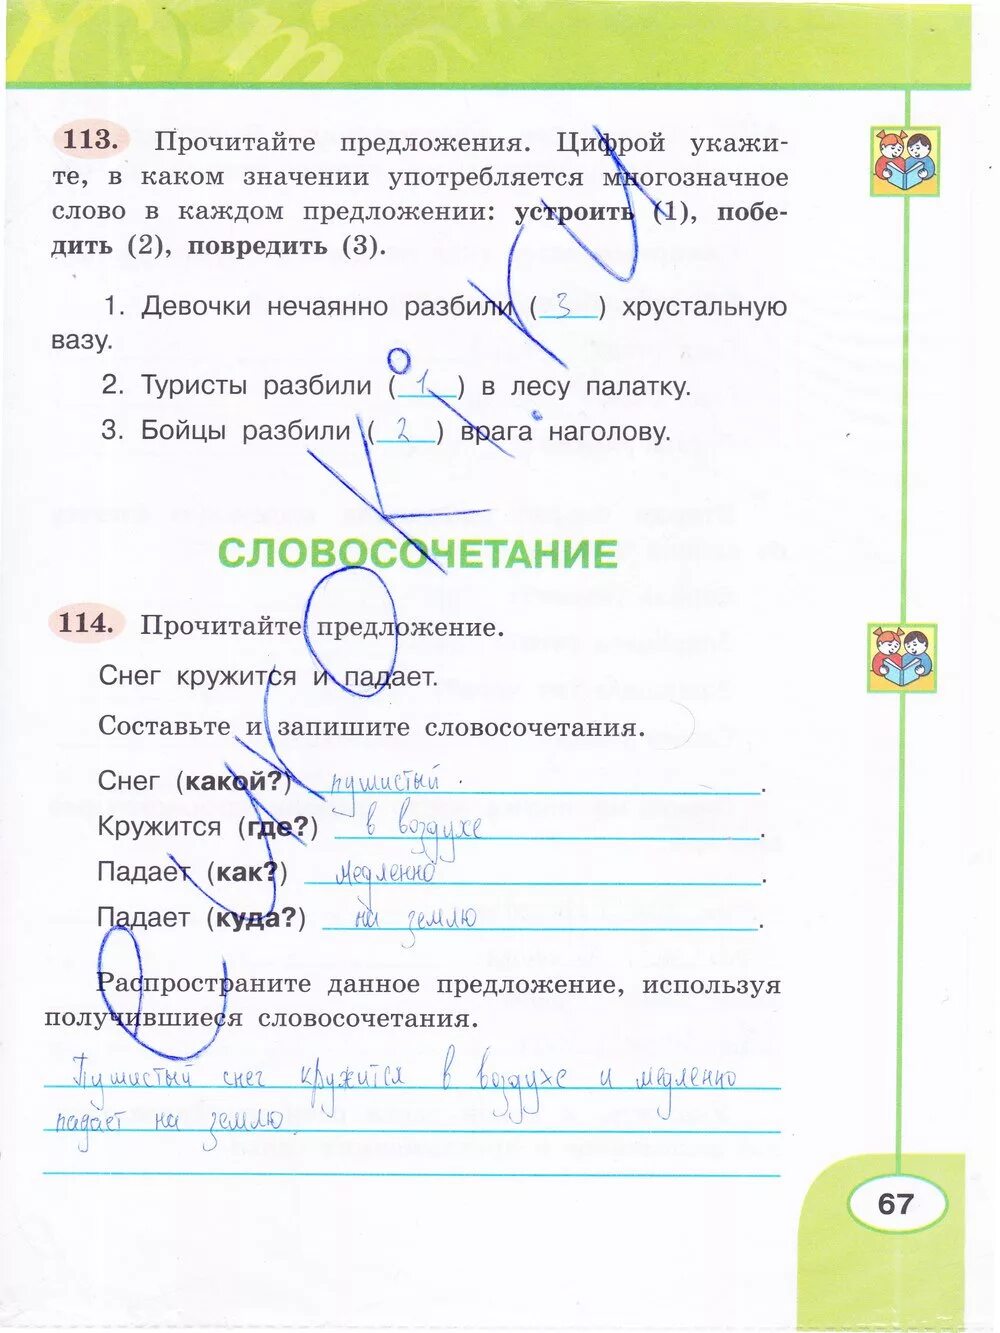 113. Прочитайте предложения. Цифрой укажи-
те, в каком значении употребляется многозначное
слово в каждом предложении: устроить (1), побе-
дить (2), повредить (3).
1. Девочки нечаянно разбили ( 3 ) хрустальную
вазу.
2. Туристы разбили ( 1 ) в лесу палатку.
3. Бойцы разбили ( 2 ) врага наголову.
СЛОВОСОЧЕТАНИЕ
114. Прочитайте предложение.
Снег кружится и падает.
Составьте и запишите словосочетания.
Снег (какой?) пушистый.
Кружится (где?) в воздухе.
Падает (как?) медленно.
Падает (куда?) на землю.
Распространите данное предложение, используя
получившиеся словосочетания.
Пушистый снег кружится в воздухе и медленно
падает на землю.
67